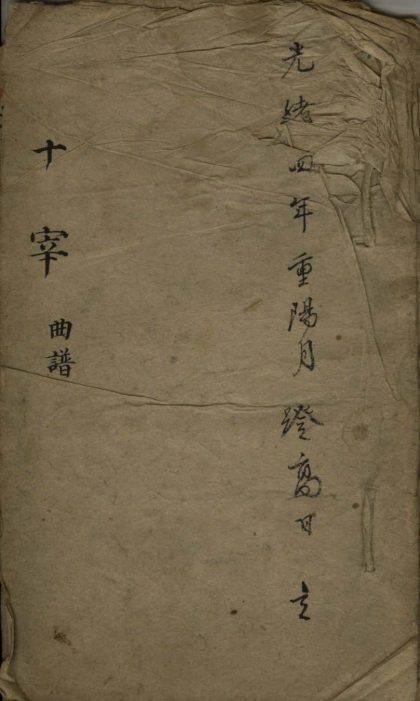 光緒四年重陽月蹬高日立
十宰
曲譜